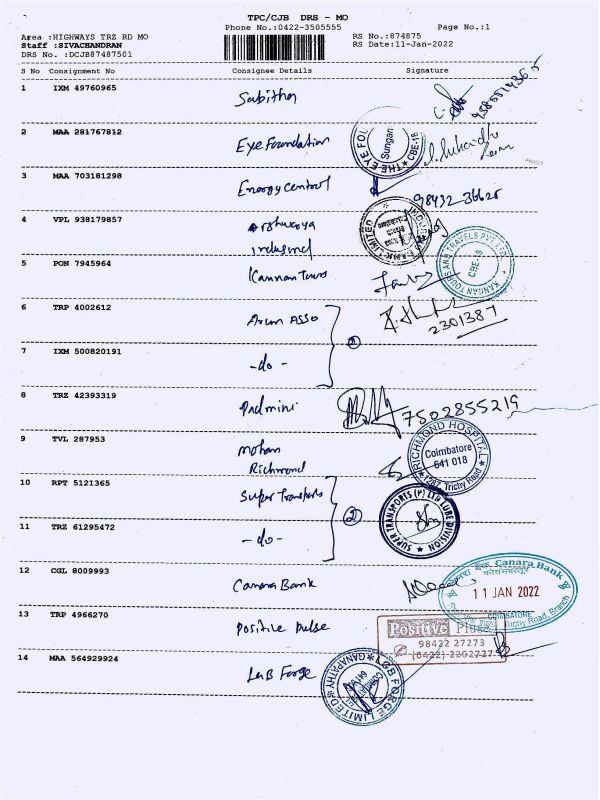 TPC/CJB DRS - MO
Phone No.:0422-3505555
Page No.:1
Area :HIGHWAYS TRZ RD MO
RS No.:874875
Staff :SIVACHANDRAN
RS Date:11-Jan-2022
DRS No. :DCJB87487501
S No Consignment No Consignee Details Signature
1 IXM 49760965 Sabitha
2 MAA 281767812 Eye Foundation
THE EYE FOU
Sungam
CBE-18
3 MAA 703181298 Energy Control
98432-36625
4 VPL 938179857
Indusind
BANK LIMITED
5 PON 7945964 Kannan Tours
KANNAN TOURS AND TRAVELS PVT. LTD.
CBE-18
6 TRP 4002612 Arun ASSO
2301387
2
7 IXM 500820191 -do-
8 TRZ 42393319 Padmini 7502855219
9 TVL 287953 Mohan
Richmond
RICHMOND HOSPITAL
Coimbatore
641 018
1287, Trichy Road
10 RPT 5121365 Super Transports
SUPER TRANSPORTS (P) LTD LUBE DIVISION
2
11 TRZ 61295472 -do-
12 CGL 8009993 Canara Bank
Canara Bank
11 JAN 2022
COIMBATORE
Trichy Road, Branch
13 TRP 4966270 Positive Pulse
Positive Pulse
98422 27273
(0422) 2302727
14 MAA 564929924 LGB Forge
LGB FORGE LIMITED
GANAPATHY